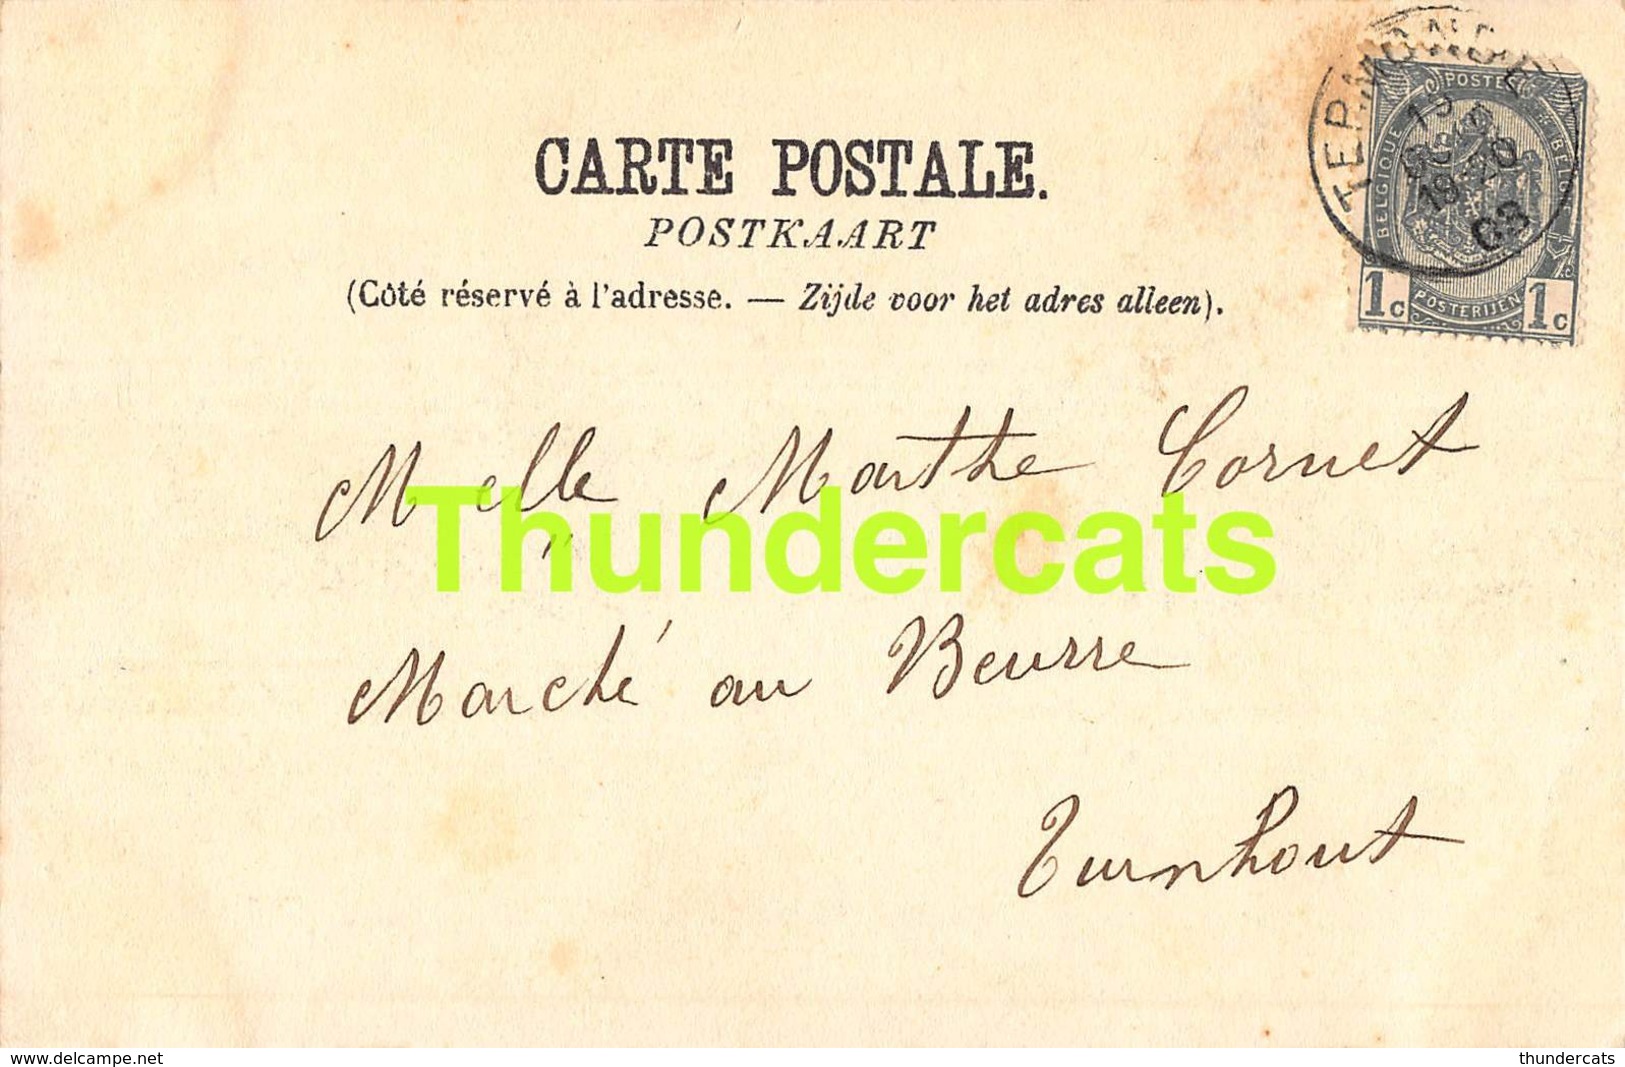 CARTE POSTALE.
POSTKAART
(Côté réservé à l'adresse. — Zijde voor het adres alleen).
TERMONDE
19
19-20
03
POSTES
BELGIQUE
BELGIË
1c POSTERIJEN 1c
Melle Marthe Cornet
Thundercats
Marché au Beurre
Turnhout
www.delcampe.net
thundercats